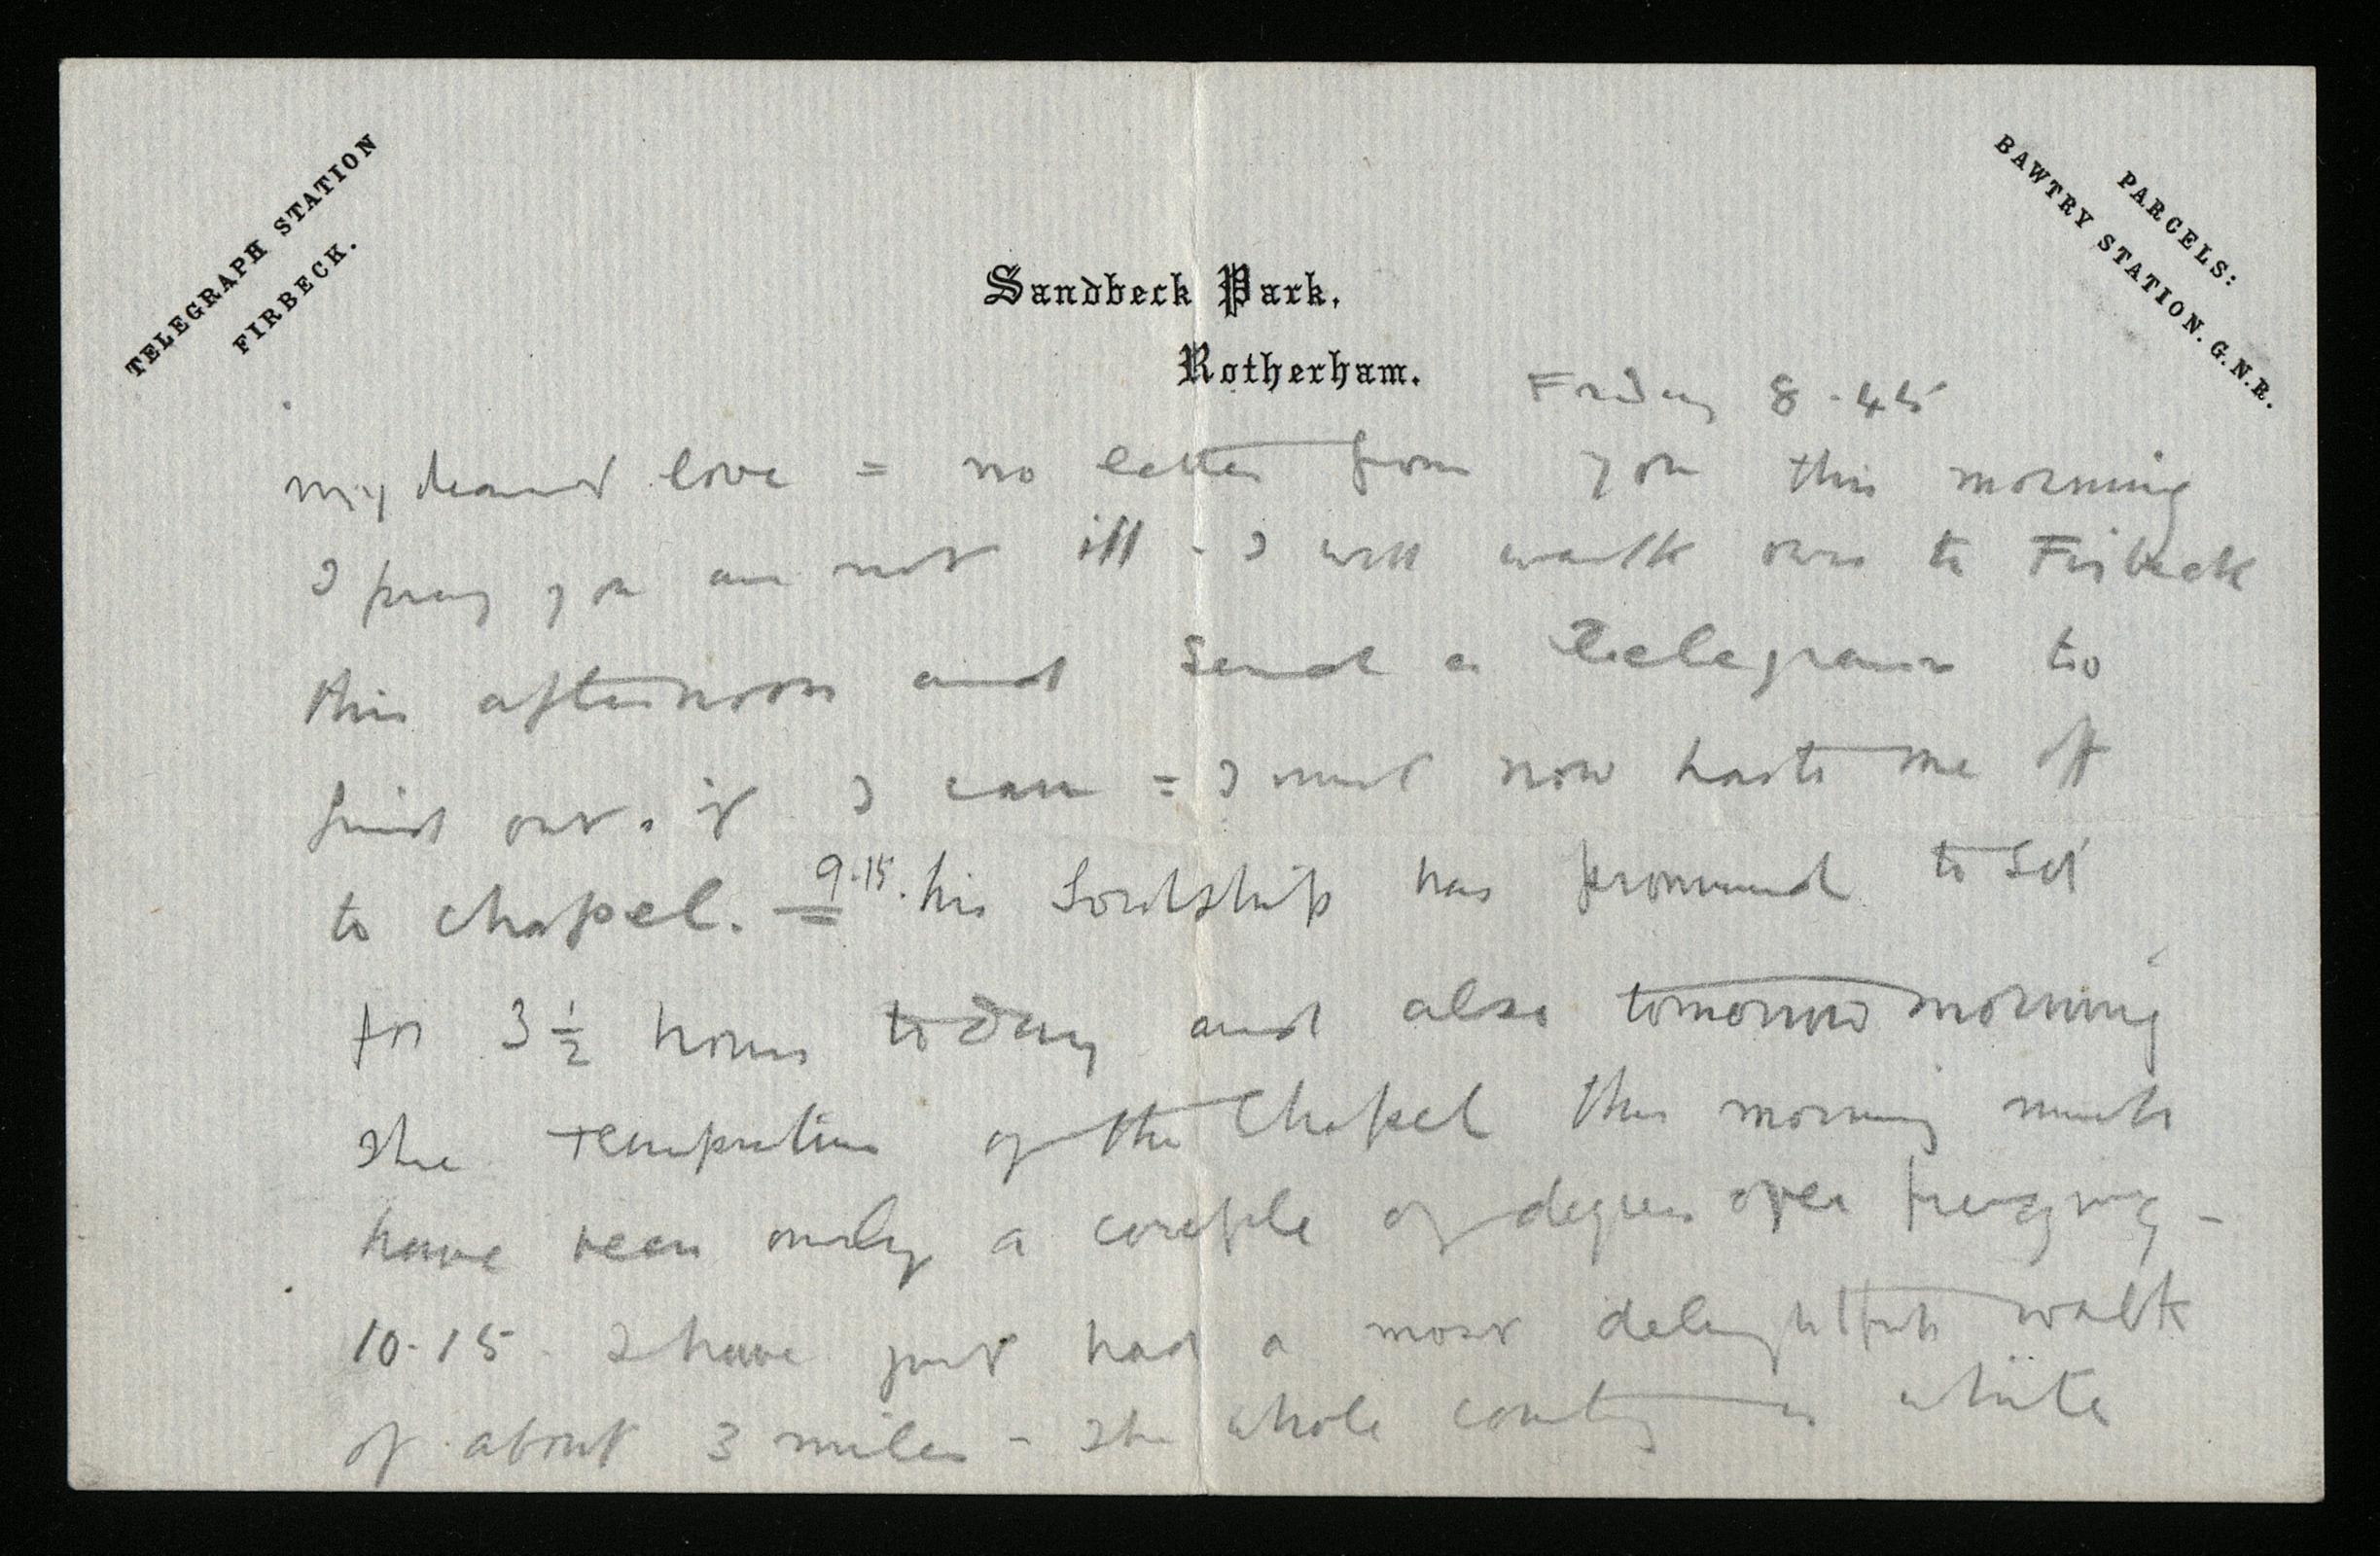 TELEGRAPH STATION
FIRBECK.
PARCELS:
BAWTRY STATION. G.N.R.
Sandbeck Park,
Rotherham.
Friday 8.45
my dearest love = no letter from you this morning
I pray you are not ill - I will walk over to Firbeck
this afternoon and send a Telegram to
find out. if I can = I must now haste me off
to chapel. = 9.15. his Lordship has promised to sit
for 3 1/2 hours today and also tomorrow morning
The temperature of the Chapel this morning must
have been only a couple of degrees over freezing -
10.15. I have just had a most delightful walk
of about 3 miles - The whole country is white